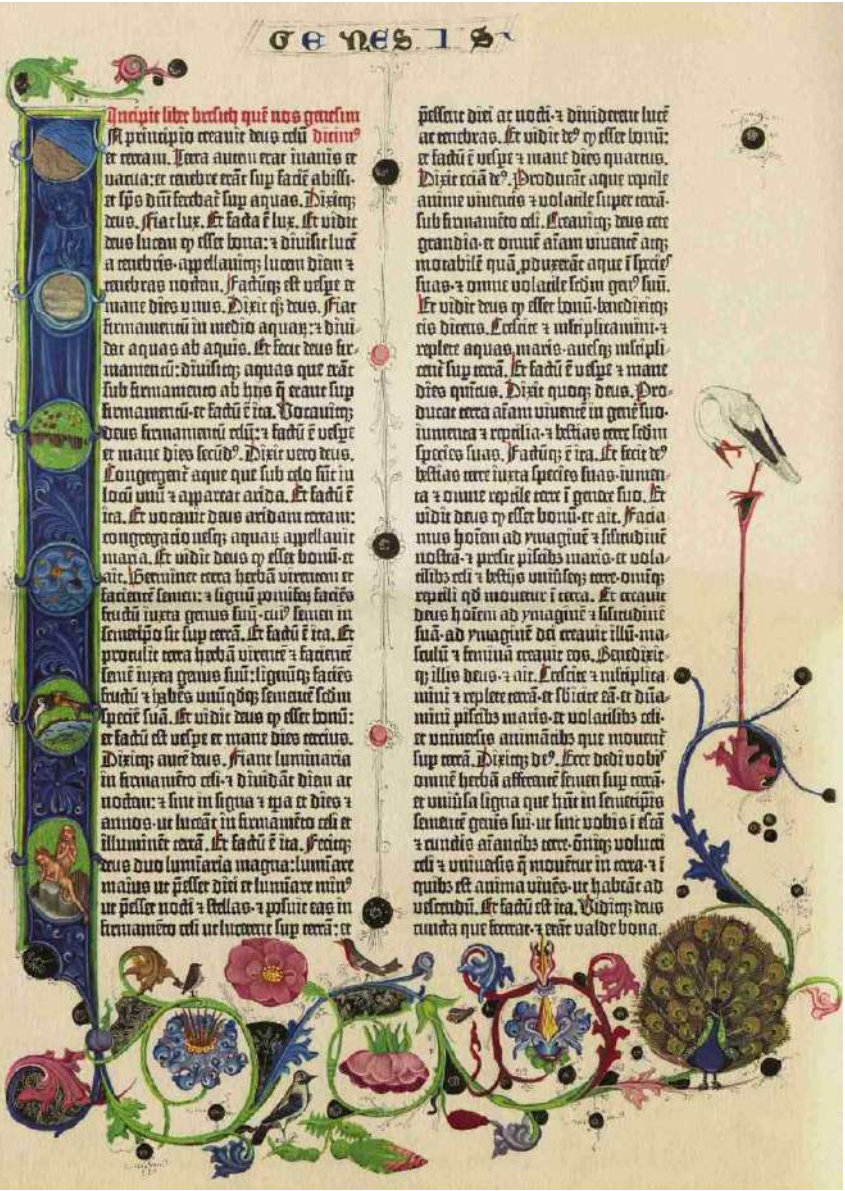 GENESIS
Incipit liber bresich quē nos genesim
In principio creauit deus celū dicimꝰ
et terram. Terra autem erat inanis et
vacua: et tenebre erāt sup faciē abissi·
et sp̄s dn̄i ferebat̄ sup aquas. Dixitqꝫ
deus. Fiat lux. Et facta ē lux. Et vidit
deus lucem ꝙ esset bona: ⁊ diuisit lucē
a tenebris· appellauitqꝫ lucem diem ⁊
tenebras noctem. Factūqꝫ est vespe et
mane dies vnus. Dixit qꝫ deus. Fiat
firmamentū in medio aquaꝝ: ⁊ diui-
dat aquas ab aquis. Et fecit deus fir-
mamentū: diuisitqꝫ aquas que erāt
sub firmamento ab hijs q̄ erant sup
firmamentū· et factū ē ita. Vocauitqꝫ
deus firmamentū celū: ⁊ factū ē vespe
et mane dies secūdꝰ. Dixit vero deus.
Congregent̄ aque que sub celo sūt in
locū vnū ⁊ appareat arida. Et factū ē
ita. Et vocauit deus aridam terram:
congregacionesqꝫ aquaꝝ appellauit
maria. Et vidit deus ꝙ esset bonū· et
ait. Germinet terra herbā virentem et
facientē semen: ⁊ lignū pomifeꝝ faciēs
fructū iuxta genus suū· cuiꝰ semen in
semetip̄o sit sup terrā. Et factū ē ita. Et
protulit terra herbā virentē ⁊ facientē
semē iuxta genus suū: lignūqꝫ faciēs
fructū ⁊ habēs vnūqdqꝫ sementē scdm
speciē suā. Et vidit deus ꝙ esset bonū:
et factū est vespe et mane dies tercius.
Dixitqꝫ autē deus. Fiant luminaria
in firmamēto celi· ⁊ diuidāt diem ac
noctem: ⁊ sint in signa ⁊ tp̄a et dies ⁊
annos· ut luceāt in firmamēto celi et
illuminēt terrā. Et factū ē ita. Fecitqꝫ
deus duo luminaria magna: lumīare
maius ut p̄esset diei et lumīare minꝰ
ut p̄esset nocti ⁊ stellas· ⁊ posuit eas in
firmamēto celi ut lucerent sup terrā: et
p̄essent diei ac nocti· ⁊ diuiderent lucē
ac tenebras. Et vidit deꝰ ꝙ esset bonū:
et factū ē vespe ⁊ mane dies quartus.
Dixit eciā deꝰ. Producāt aque reptile
anime viuentis ⁊ volatile super terrā·
sub firmamēto celi. Creauitqꝫ deus cete
grandia· et omnē aīam viuentē atqꝫ
motabilē quā ꝓduxerāt aque ī species
suas· ⁊ omne volatile scdm genꝰ suū.
Et vidit deus ꝙ esset bonū· benedixitqꝫ
eis dicens. Crescite ⁊ mltiplicamini· ⁊
replete aquas maris· auesqꝫ mltipli-
cent̄ sup terrā. Et factū ē vespe ⁊ mane
dies quītus. Dixit quoqꝫ deus. Pro-
ducat terra aīam viuentē in genē suo·
iumenta ⁊ reptilia· ⁊ bestias terre scdm
species suas. Factūqꝫ ē ita. Et fecit deꝰ
bestias terre iuxta species suas· iumen-
ta ⁊ omne reptile terre ī genere suo. Et
vidit deus ꝙ esset bonū· et ait. Facia-
mus hoīem ad ymaginē ⁊ silitudinē
nostrā· ⁊ presit piscibs maris· et vola-
tilibs celi ⁊ bestijs vniūseqꝫ terre· omīqꝫ
reptili qd mouetur ī terra. Et creauit
deus hoīem ad ymaginē ⁊ silitudinē
suā· ad ymaginē dei creauit illū· ma-
sculū ⁊ feminā creauit eos. Benedixit-
qꝫ illis deus· ⁊ ait. Crescite ⁊ mltiplica-
mini ⁊ replete terrā· et sbicite eā· et dn̄a-
mini piscibs maris· et volatilibs celi·
et vniuersis animātibs que mouent̄
sup terrā. Dixitqꝫ deꝰ. Ecce dedi vobis
omnē herbā afferentē semen sup terrā·
et vniūsa ligna que hn̄t in semetip̄is
sementē genis sui· ut sint vobis ī escā
⁊ cunctis aīantibs terre· omīqꝫ volucri
celi ⁊ vniuersis q̄ mouēt̄ in terra· ⁊ ī
quibs est anima viuēs· ut habeāt ad
vescendū. Et factū est ita. Viditqꝫ deus
cuncta que fecerat· ⁊ erāt valde bona.